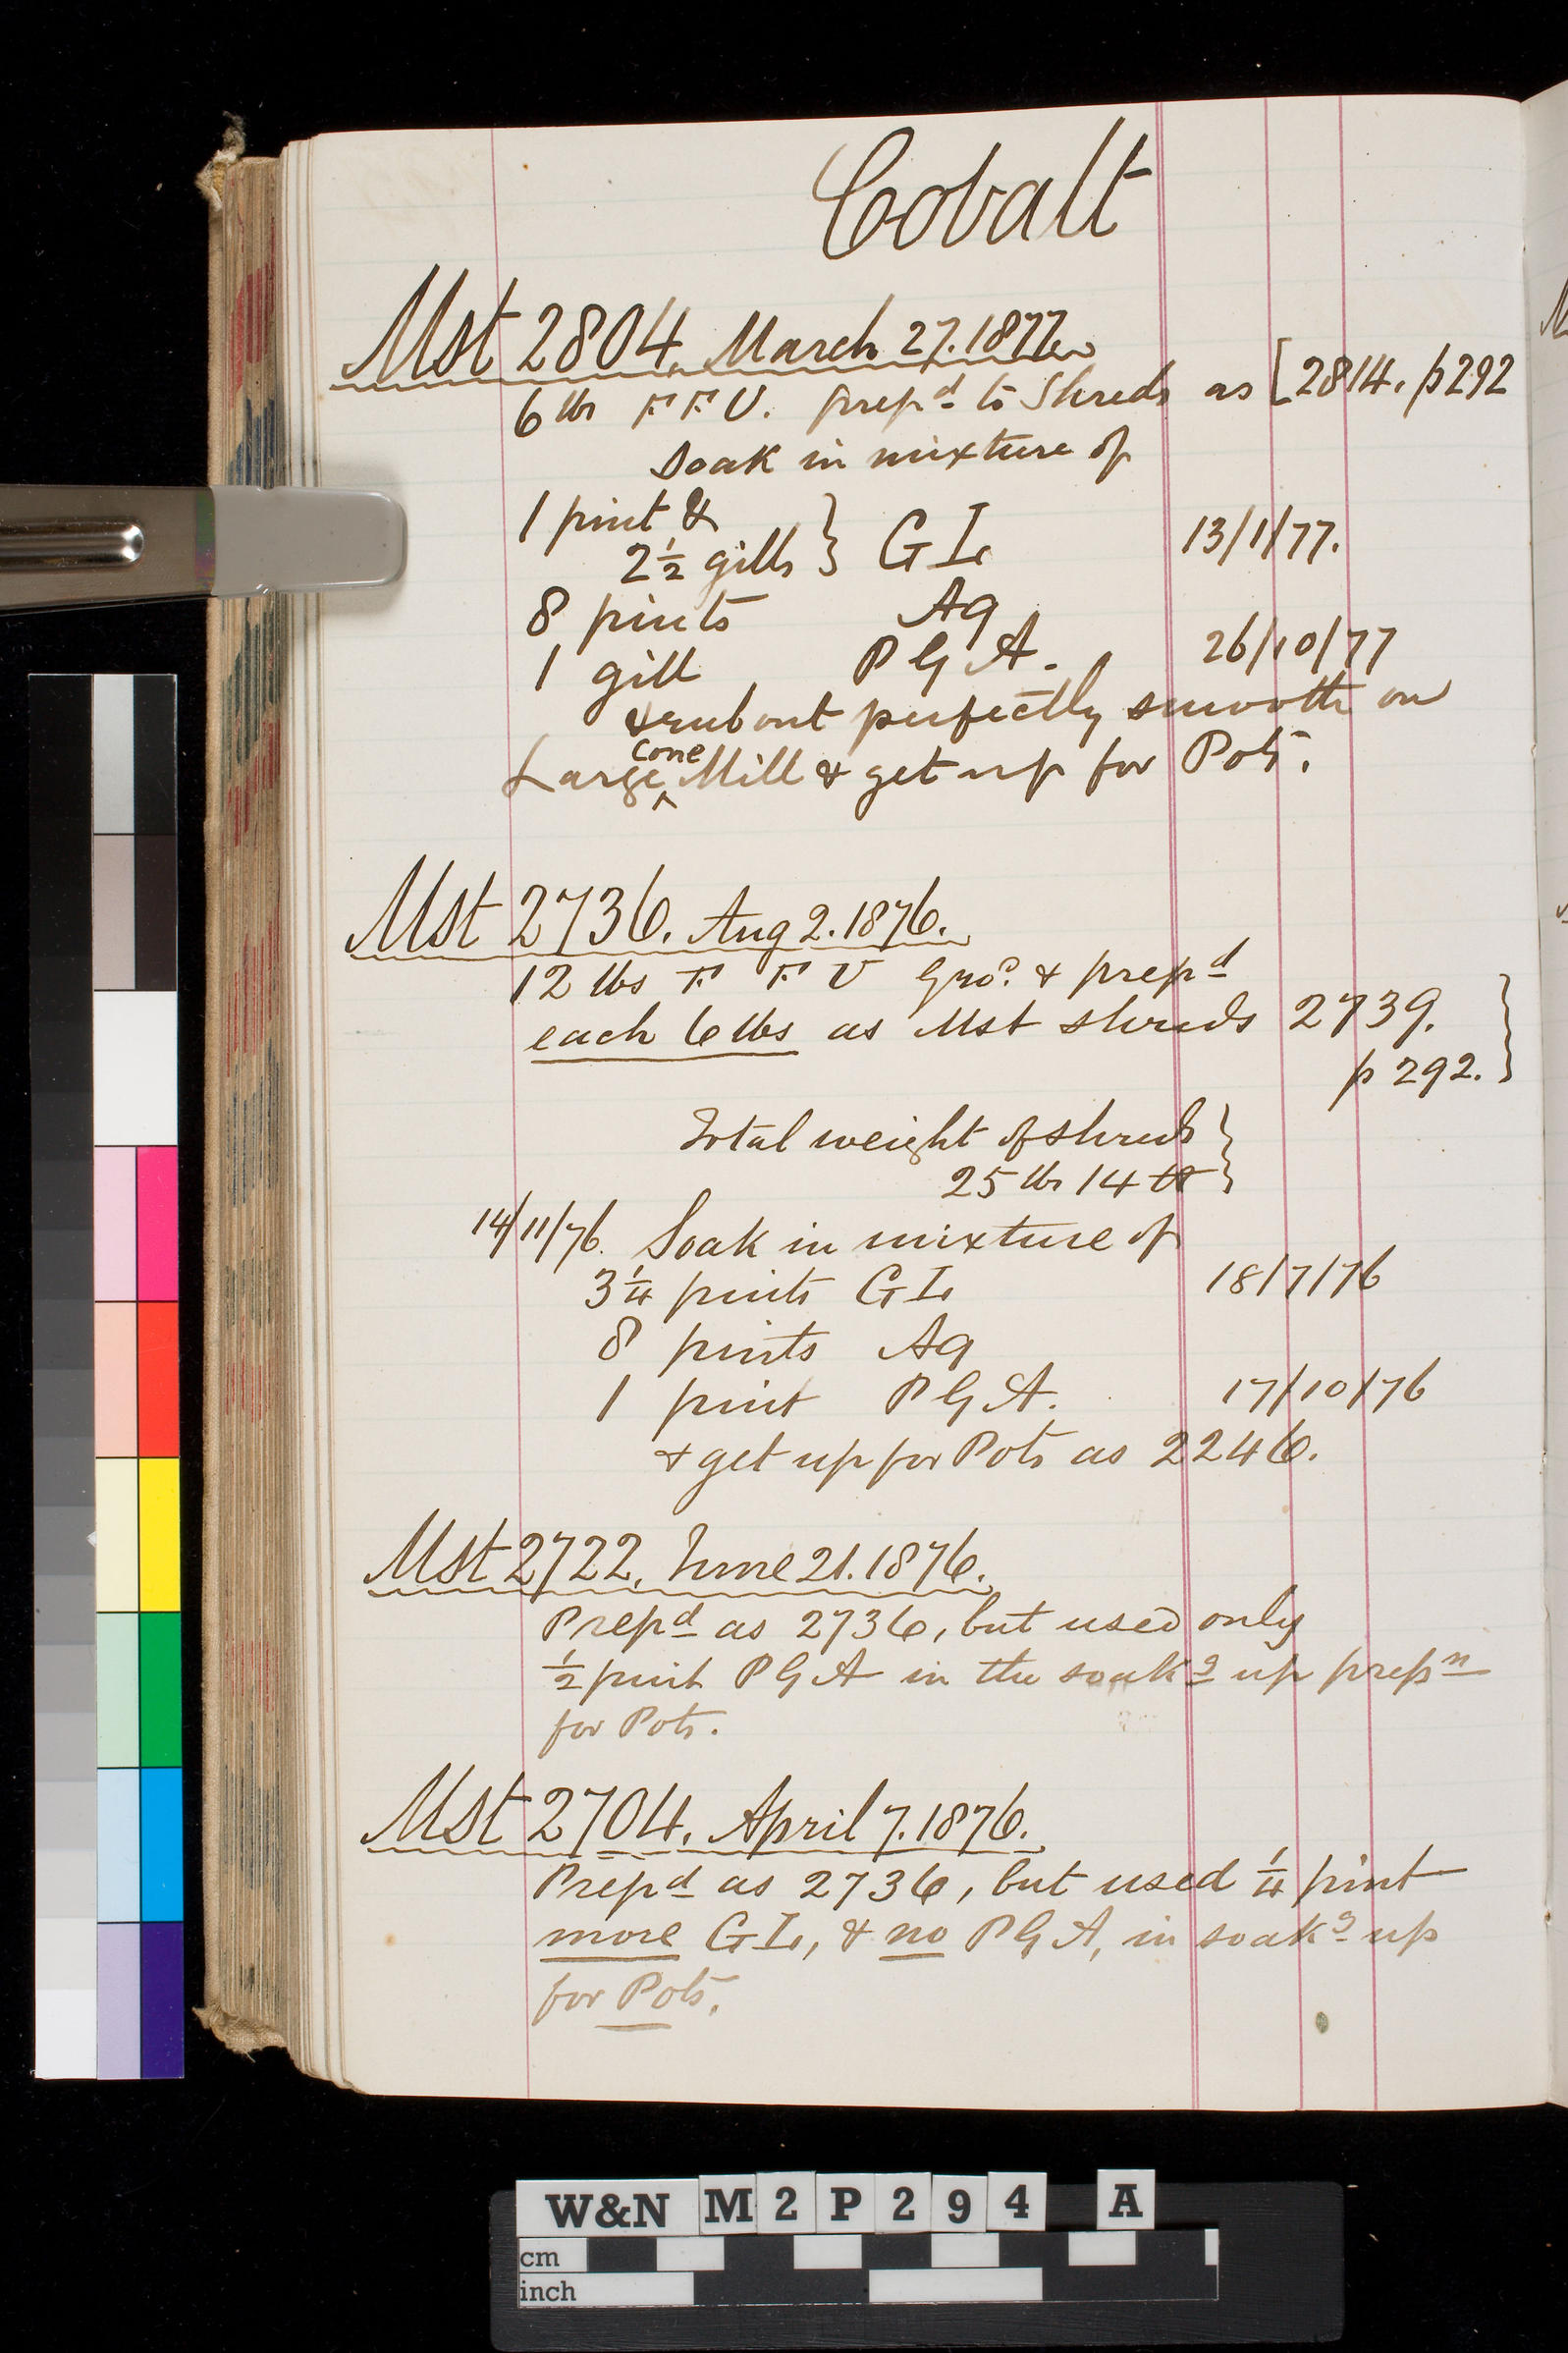 Cobalt
Mst 2804. March 27. 1877.
6 lbs F F U. prepd to Shreds as [2814. p292
Soak in mixture of
1 pint &
2½ gills } G L 13/1/77.
8 pints Aq
1 gill P G A. 26/10/77
& rub out perfectly smooth on
Large ^ Cone Mill & get up for Pots.
Mst 2736. Aug 2. 1876.
12 lbs F F U Grod & prepd
each 6 lbs as Mst shreds 2739. }
p 292.
Total weight of shreds }
25 lbs 14
14/11/76. Soak in mixture of
3¼ pints G L 18/7/76
8 pints Aq
1 pint P G A. 17/10/76
& get up for Pots as 2246.
Mst 2722. June 21. 1876.
Prepd as 2736, but used only
½ pint P G A in the soakg up prepn
for Pots.
Mst 2704. April 7. 1876.
Prepd as 2736, but used ¼ pint
more G L, & no P G A, in soakg up
for Pots.
W&N M 2 P 2 9 4 A
cm
inch